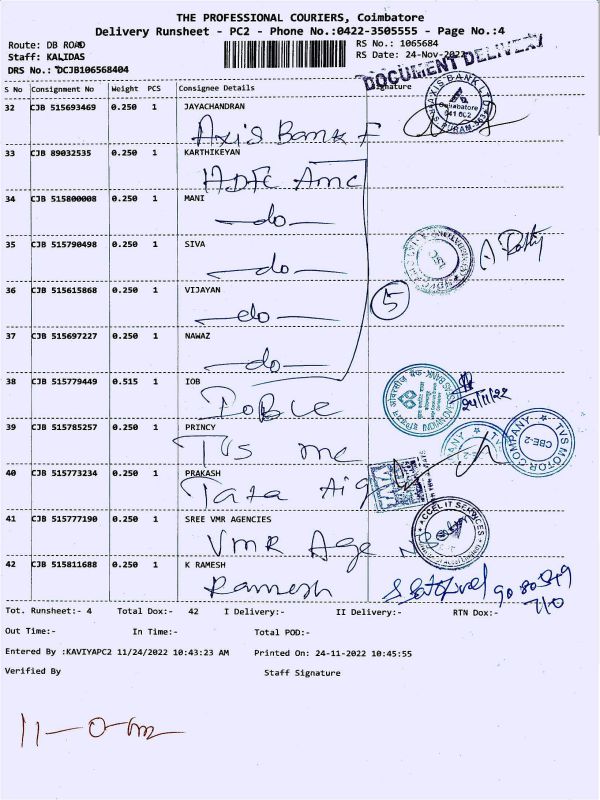 THE PROFESSIONAL COURIERS, Coimbatore
Delivery Runsheet - PC2 - Phone No.:0422-3505555 - Page No.:4
Route: DB ROAD
RS No.: 1065684
Staff: KALIDAS
RS Date: 24-Nov-2022
DRS No.: DCJB106568404
DOCUMENT DELIVERY
S No Consignment No Weight PCS Consignee Details Signature
32 CJB 515693469 0.250 1 JAYACHANDRAN
Axis Bank F
AXIS BANK LTD
Coimbatore
641 002
R.S. PURAM
33 CJB 89032535 0.250 1 KARTHIKEYAN
HDFC Amc
34 CJB 515800008 0.250 1 MANI
-do-
35 CJB 515790498 0.250 1 SIVA
-do-
36 CJB 515615868 0.250 1 VIJAYAN
-do-
5
37 CJB 515697227 0.250 1 NAWAZ
-do-
38 CJB 515779449 0.515 1 IOB
24/11/22
39 CJB 515785257 0.250 1 PRINCY
TVS mc
TVS MOTOR COMPANY
CBE-2
40 CJB 515773234 0.250 1 PRAKASH
Tata Aig
41 CJB 515777190 0.250 1 SREE VMR AGENCIES
VMR Age
ACCEL IT SERVICES
42 CJB 515811688 0.250 1 K RAMESH
Ramesh
Tot. Runsheet:- 4 Total Dox:- 42 I Delivery:- II Delivery:- RTN Dox:-
Out Time:- In Time:- Total POD:-
Entered By :KAVIYAPC2 11/24/2022 10:43:23 AM Printed On: 24-11-2022 10:45:55
Verified By Staff Signature